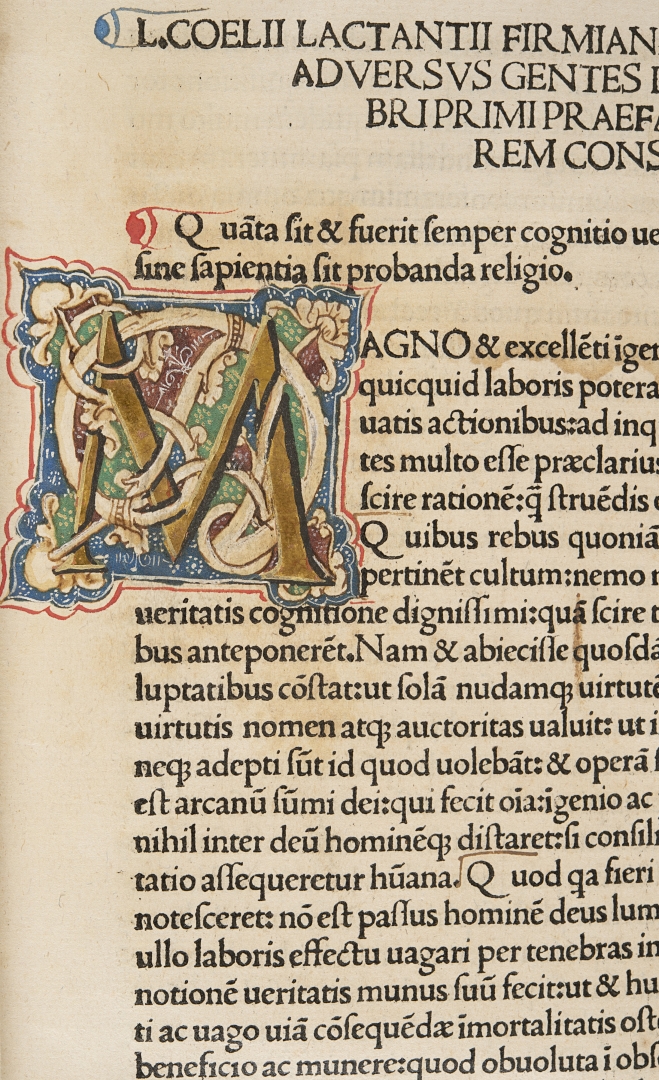 L.COELII LACTANTII FIRMIAN
ADVERSVS GENTES
BRI PRIMI PRAEFA
REM CONS
Quāta ſit & fuerit ſemper cognitio ue
ſine ſapientia ſit probanda religio.
MAGNO & excellēti īgen
quicquid laboris potera
uatis actionibus:ad inq
tes multo eſſe præclarius
ſcire rationē:q̄ ſtruēdis
Quibus rebus quoniā
pertinēt cultum:nemo
ueritatis cognitione digniſſimi:quā ſcire
bus anteponerēt.Nam & abieciſſe quoſdā
luptatibus cōſtat:ut ſolā nudamqꝫ uirtutē
uirtutis nomen atqꝫ auctoritas ualuit: ut
neqꝫ adepti ſūt id quod uolebāt: & operā
eſt arcanū ſūmi dei:qui fecit oīa:īgenio ac
nihil inter deū hominēqꝫ diſtaret:ſi conſili
tatio aſſequeretur hūana.Quod qa fieri
noteſceret: nō eſt paſſus hominē deus lum
ullo laboris effectu uagari per tenebras in
notionē ueritatis munus ſuū fecit:ut & hu
ti ac uago uiā cōſequēdæ īmortalitatis oſtē
beneficio ac munere:quod obuoluta ī obſ